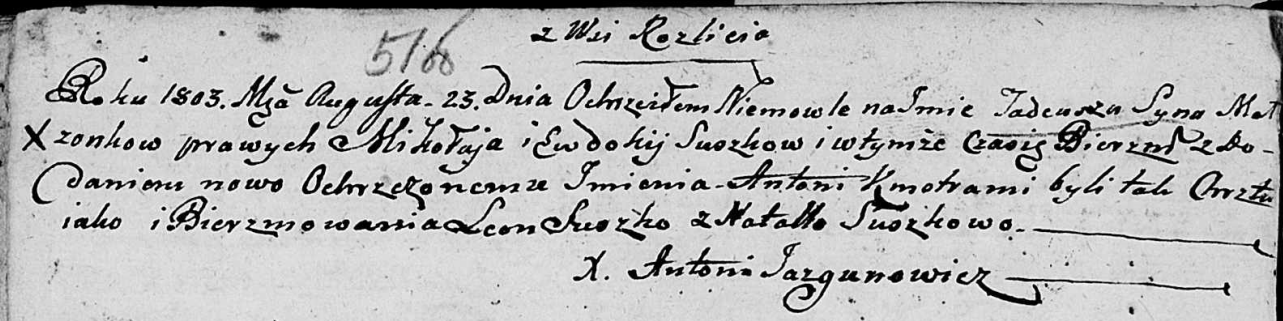 z Wsi Rozlicia
516
Roku 1803. Mca Augusta. 23. Dnia Ochrzciłem Niemowle na Jmie Tadeusza Syna Mał
X zonkow prawych Mikołaja i Ewdokij Suszkow i wtymże Czasię Bierzm z Do-
daniem nowo Ochrzczonemu Jmienia Antoni Kmotrami byli tak Chrztu
iako i Bierzmowania Leon Suszko z Natallo Suszkowo.
X. Antoni Jazgunowicz